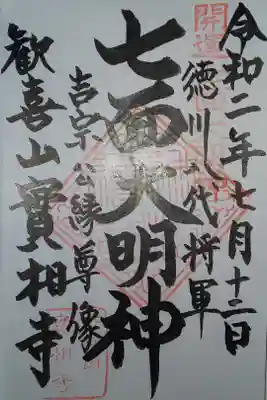 開運
令和二年七月十二日
徳川八代将軍
七面大明神
吉宗公縁尊像
歓喜山實相寺